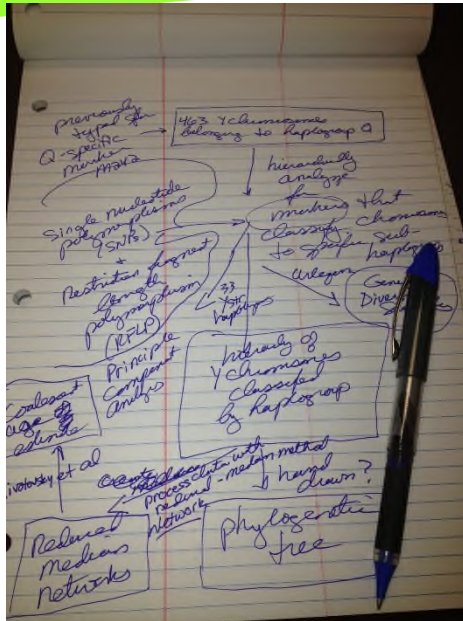 previously
typed for
Q-specific
marker
M242
463 Y chromosomes
belonging to haplogroup Q
hierarchically
analyze
for
markers that
classify chromosomes
to specific sub-
haplogroups
Single nucleotide
polymorphisms
(SNPs)
+
Restriction fragment
length
polymorphism
(RFLP)
33
Ystr
haplotypes
Principle
component
analysis
Coalescent
age
estimate
et al
Hierarchy of
Y chromosomes
classified
by haplogroup
process data with
reduced-median method
network
hand
drawn?
Reduced
Median
networks
phylogenetic
tree